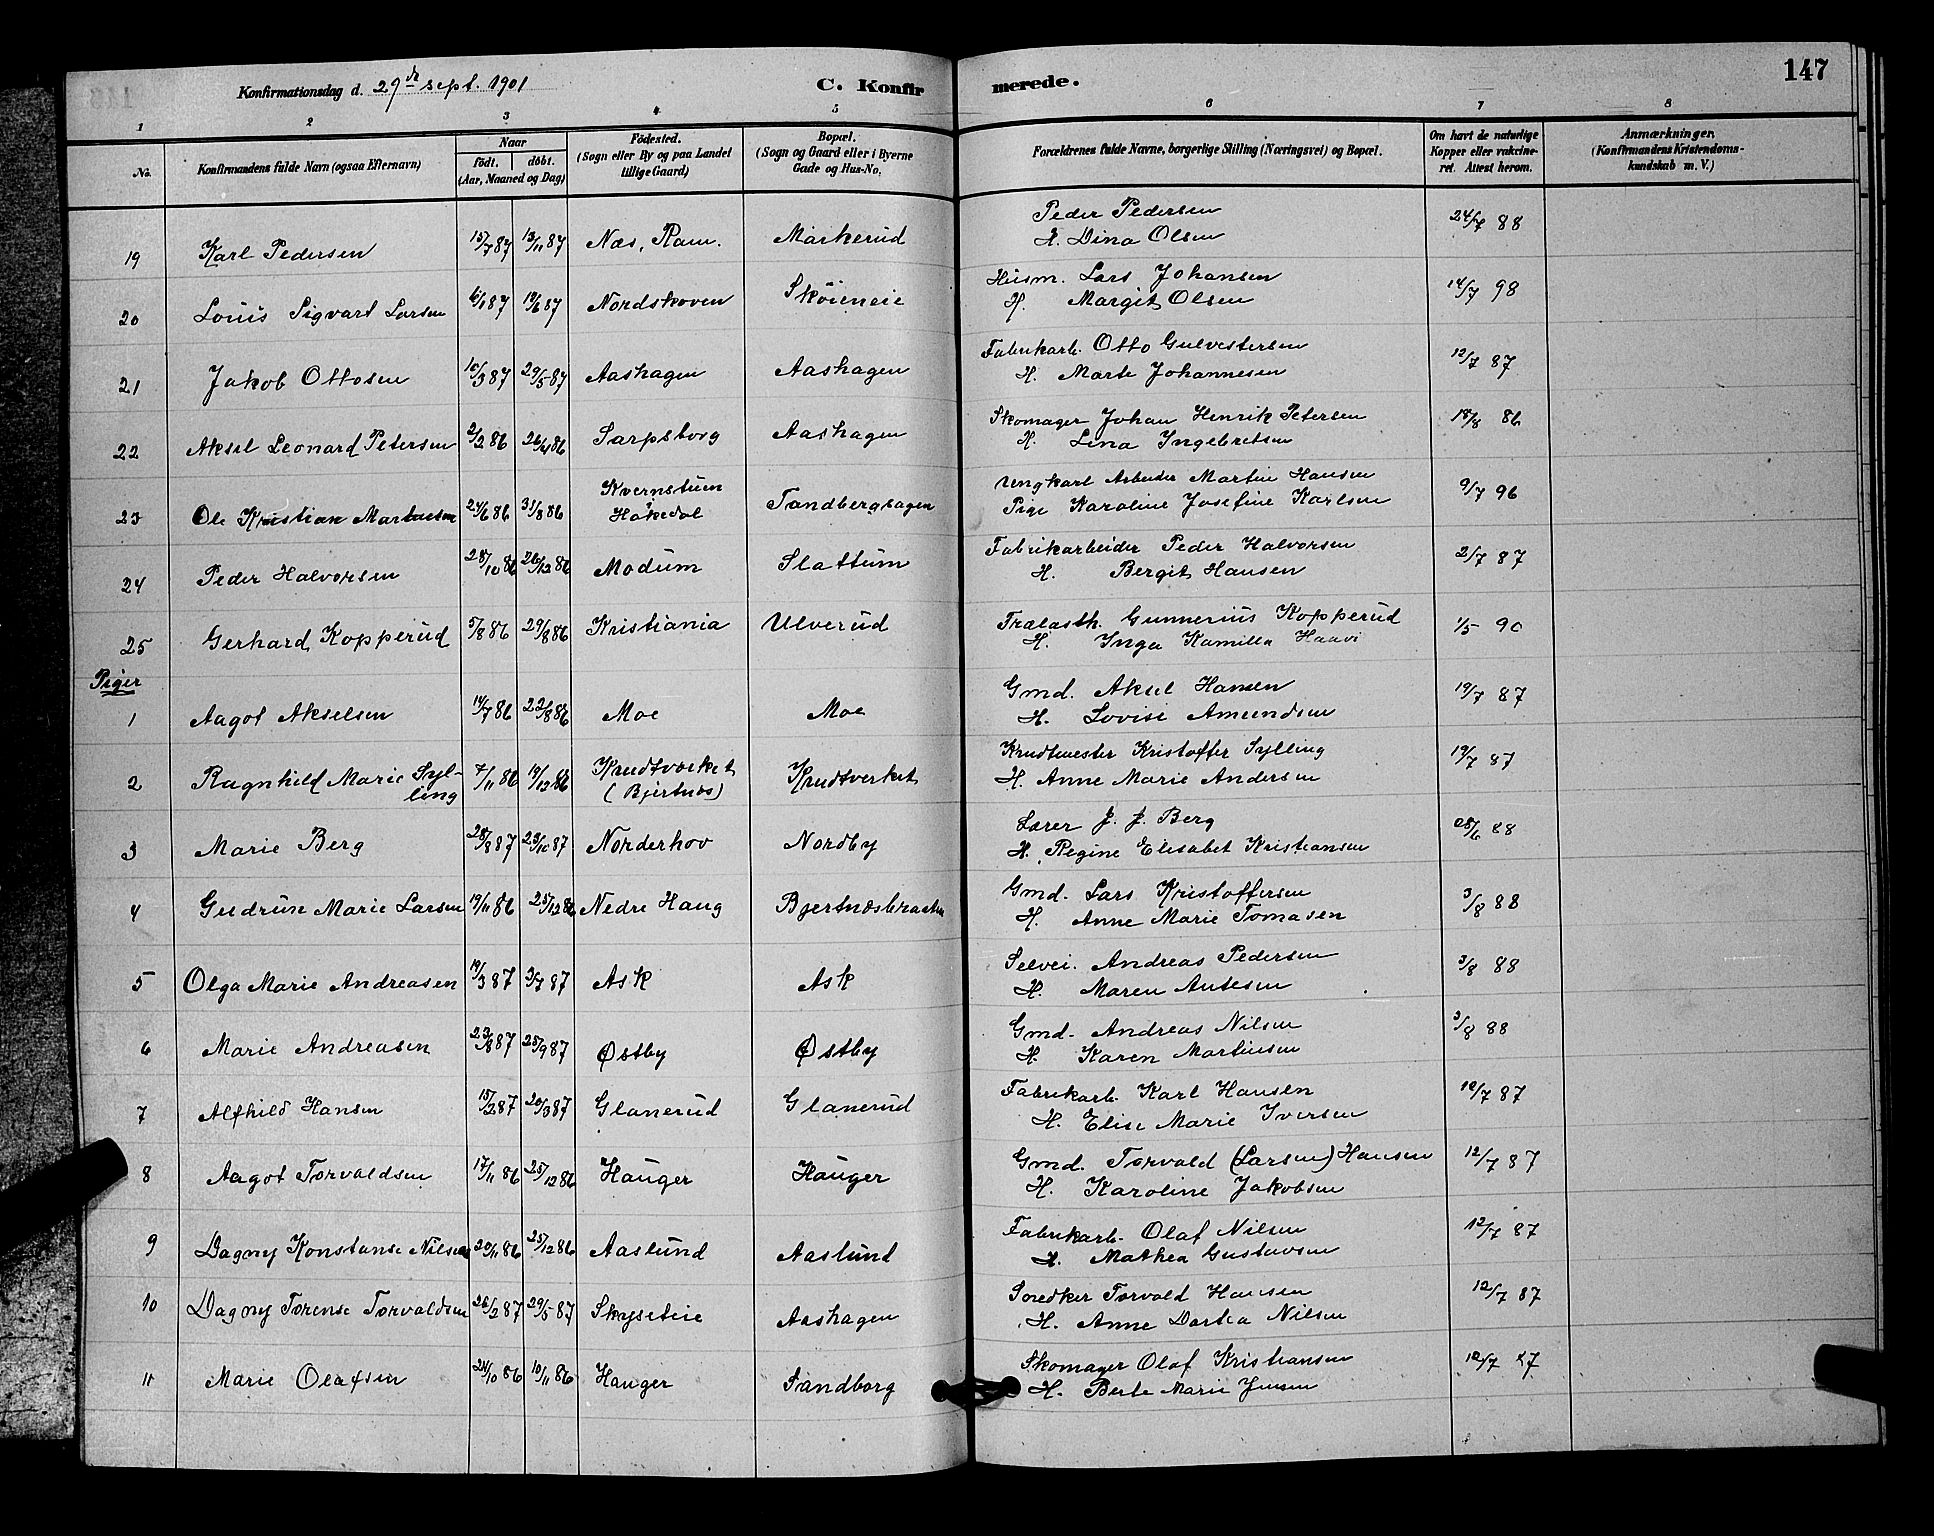 Konfirmationsdag d. 29de sept. 1901 C. Konfirmerede. 147
1 2 3 4 5 6 7 8
No. Konfirmandens fulde Navn (ogsaa Efternavn) Naar født. døbt. (Aar, Maaned og Dag) Fødested. (Sogn eller By og paa Landet tillige Gaard) Bopæl. (Sogn og Gaard eller i Byerne Gade og Hus-No. Forældrenes fulde Navne, borgerlige Stilling (Næringsvei) og Bopæl. Om havt de naturlige Kopper eller vakcineret. Attest herom. Anmærkninger. (Konfirmandens Kristendomskundskab m. V.)
19 Karl Pedersen 15/7 87 13/11 87 Næs, Rom. Markerud Peder Pedersen 24/7 88
H. Dina Olsen
20 Louis Sigvart Larsen 6/1 87 19/6 87 Nordskoven Skøieneie Husm. Lars Johansen 14/7 98
H. Margit Olsen
21 Jakob Ottosen 10/3 87 29/5 87 Aashagen Aashagen Fabrikarb. Otto Gulvestersen 12/7 87
H. Marte Johannesen
22 Aksel Leonard Petersen 2/2 86 26/4 86 Sarpsborg Aashagen Skomager Johan Henrik Petersen 18/8 86
H. Lina Ingebretsen
23 Ole Kristian Martinsen 24/6 86 31/8 86 Kvernstuen Hakedal Tandberghagen Ungkarl Arbeider Martin Hansen 9/7 96
Pige Karoline Josefine Karlsen
24 Peder Halvorsen 28/10 86 26/12 86 Modum Slattum Fabrikarbeider Peder Halvorsen 2/7 87
H. Bergit Hansen
25 Gerhard Kopperud 5/8 86 29/8 86 Kristiania Ulverud Trælasth. Gunnerius Kopperud 1/5 90
H. Inga Kamilla Haavi
Piger
1 Aagot Akselsen 14/7 86 22/8 86 Moe Moe Gmd. Aksel Hansen 19/7 87
H. Lovise Amundsen
2 Ragnhild Marie Sylling 7/11 86 19/12 86 Krudtværket (Bjertnæs) Krudtverket Krudtmester Kristoffer Sylling 19/7 87
H. Anne Marie Andersen
3 Marie Berg 28/8 87 23/10 87 Norderhov Nordby Lærer J. J. Berg 28/6 88
H. Regine Elisabet Kristiansen
4 Gudrun Marie Larsen 19/11 86 25/12 86 Nedre Haug Bjertnæsbraaten Gmd. Lars Kristoffersen 3/8 88
H. Anne Marie Tomasen
5 Olga Marie Andreasen 19/3 87 3/7 87 Ask Ask Selvei. Andreas Pedersen 3/8 88
H. Maren Antesen
6 Marie Andreasen 23/8 87 25/9 87 Østby Østby Gmd. Andreas Nilsen 3/8 88
H. Karen Martinsen
7 Alfhild Hansen 15/2 87 20/3 87 Glanerud Glanerud Fabrikarb. Karl Hansen 12/7 87
H. Elise Marie Iversen
8 Aagot Torvaldsen 17/11 86 25/12 86 Hauger Hauger Gmd. Torvald (Larsen) Hansen 12/7 87
H. Karoline Jakobsen
9 Dagny Konstanse Nilsen 20/11 86 25/12 86 Aaslund Aaslund Fabrikarb. Olaf Nilsen 12/7 87
H. Mathea Gustavsen
10 Dagny Torense Torvaldsen 26/2 87 29/5 87 Skyseteie Aashagen Snedker Torvald Hansen 12/7 87
H. Anne Dortea Nilsen
11 Marie Olafsen 24/10 86 10/11 86 Hauger Sandborg Skomager Olaf Kristiansen 12/7 87
H. Berte Marie Jensen